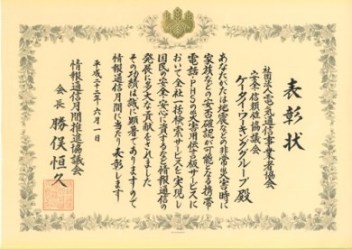 表彰状
社団法人電気通信事業者協会
安全・信頼性協議会
ケータイワーキンググループ殿
あなたがたは地震などの非常災害時に
家族などの安否確認が可能となる携帯
電話・PHSの災害用伝言板サービスに
おいて全社一括検索サービスを実現し
国民の安全・安心に資するなど情報通信の
発展に多大な貢献をされました
その功績は誠に顕著でありますので
情報通信月間に当たり表彰します
平成二十二年六月一日
情報通信月間推進協議会
会長 勝俣恒久